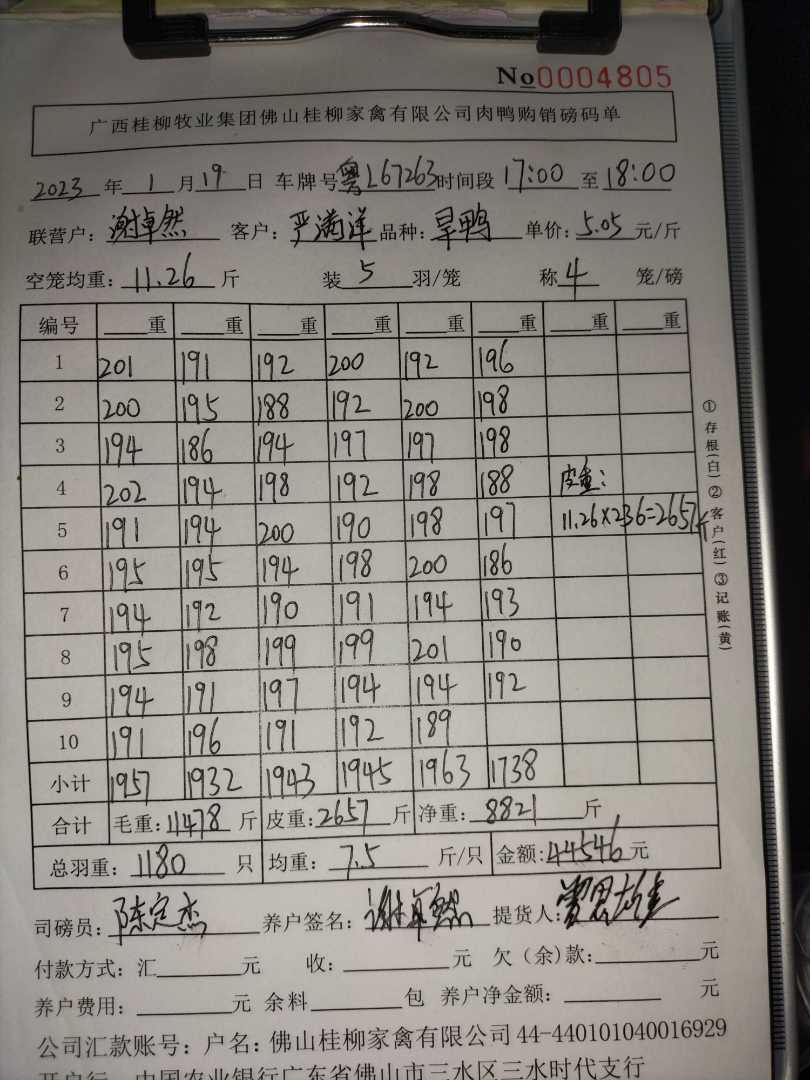 No0004805
广西桂柳牧业集团佛山桂柳家禽有限公司肉鸭购销磅码单
2023 年 1 月 19 日 车牌号 粤L67263 时间段 17:00 至 18:00
联营户: 谢卓然 客户: 严满洋 品种: 旱鸭 单价: 5.05 元/斤
空笼均重: 11.26 斤 装 5 羽/笼 称 4 笼/磅
编号 重 重 重 重 重 重 重 重
1 201 191 192 200 192 196
2 200 195 188 192 200 198
3 194 186 194 197 197 198
4 202 194 198 192 198 188 皮重:
5 191 194 200 190 198 197 11.26×236=2657斤
6 195 195 194 198 200 186
7 194 192 190 191 194 193
8 195 198 199 199 201 190
9 194 191 197 194 194 192
10 191 196 191 192 189
小计 1957 1932 1943 1945 1963 1738
合计 毛重: 11478 斤 皮重: 2657 斤 净重: 8821 斤
总羽重: 1180 只 均重: 7.5 斤/只 金额: 44546 元
司磅员: 陈定杰 养户签名: 谢卓然 提货人:
付款方式: 汇 元 收: 元 欠(余)款: 元
养户费用: 元 余料 包 养户净金额: 元
公司汇款账号: 户名: 佛山桂柳家禽有限公司 44-440101040016929
开户行 中国农业银行广东省佛山市三水区三水时代支行
①存根(白)②客户(红)③记账(黄)